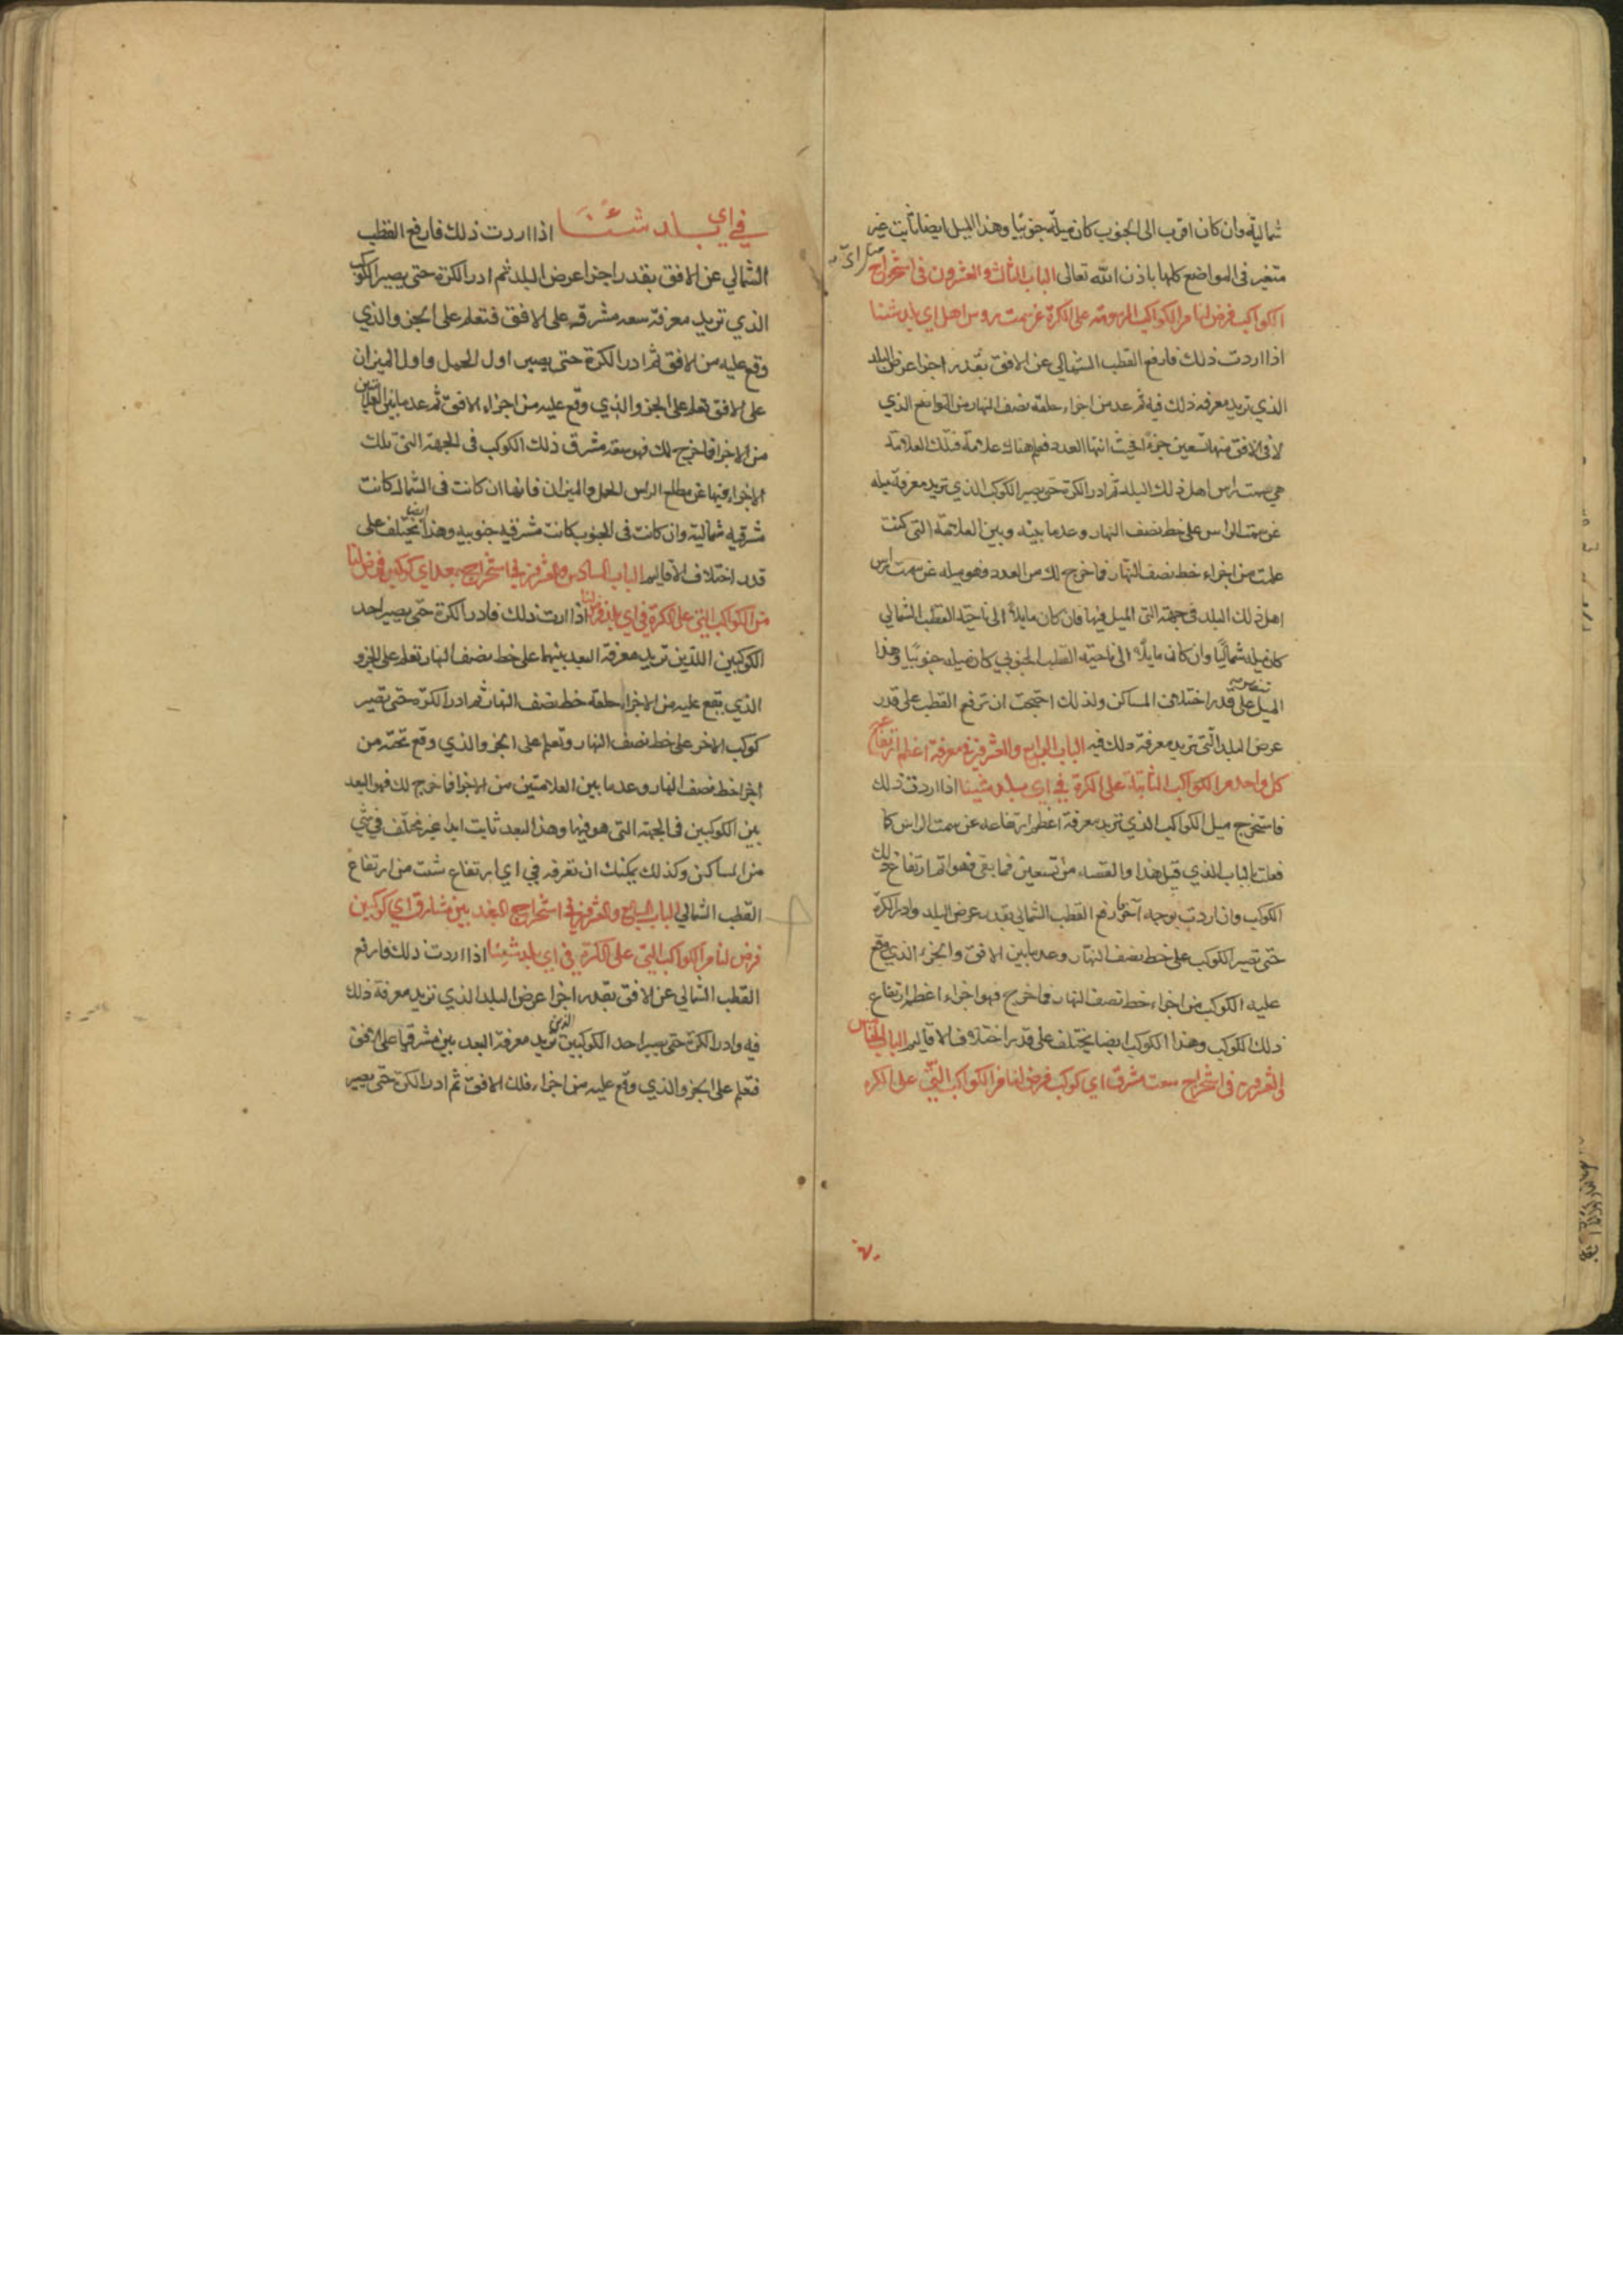 شمالية وان كان اقرب الى الجنوب كان ميله جنوبيا وهذا الميل ايضا ثابت غير
متغير فى المواضع كلها باذن الله تعالى الباب الثالث والعشرون فى استخراج
ميل اى
الكواكب فرض لنا من الكواكب المرسومة على الكرة عن سمت روس اهل اي بلد شئنا
اذا اردت ذلك فارفع القطب الشمالي عن الافق بقدر اجزا عرض البلد
الذي تريد معرفة ذلك فيه ثم عد من اجزاء حلقة نصف النهار من المواضع الذي
لاقى الافق منها تسعين جزءا فحيث انتها العدد فعلم هناك علامة فتلك العلامة
هي سمت راس اهل ذلك البلد ثم ادر الكرة حتى يصير الكوكب الذي تريد معرفة ميله
عن سمت الراس على خط نصف النهار وعد ما بينه وبين العلامة التى كنت
علمت من اجزاء خط نصف النهار فما خرج لك من العدد فهو ميله عن سمت راس
اهل ذلك البلد فى جهة التى الميل فيها فان كان مايلا الى ناحية القطب الشمالي
كان ميله شماليا وان كان مايلا الى ناحية القطب الجنوبي كان ميله جنوبيا وهذا
الميل على قدر اختلاف المساكن ولذلك احتجت ان ترفع القطب على قدر
عرض البلد التى تريد معرفة ذلك فيه الباب الرابع والعشرون في معرفة اعظم ارتفاع
كل واحد من الكواكب الثابتة على الكرة في اي بلد شينا اذا اردت ذلك
فاستخرج ميل الكواكب الذي تريد معرفة اعظم ارتفاعه عن سمت الراس كما
فعلت بالباب الذي قبل هذا والقسه من تسعين فما بقى فهو اتم ارتفاع ذلك
الكوكب وان اردت بوجه آخر فارفع القطب الشمالى بقدر عرض البلد وادر الكرة
حتى تصير الكوكب على خط نصف النهار وعد ما بين الافق والجزء الذي وقع
عليه الكوكب من اجزاء خط نصف النهار فما خرج فهو اجزاء اعظم ارتفاع
ذلك الكوكب وهذا الكوكب ايضا يختلف على قدر اختلاف الاقاليم الباب الخامس
والعشرون فى استخراج سعت مشرق اي كوكب فرض لنا من الكواكب التى على الكره
في اي بلد شئنا اذا اردت ذلك فارفع القطب
الشمالي عن الافق بقدر اجزا عرض البلد ثم ادر الكرة حتى يصير الكوكب
الذي تريد معرفة سعه مشرقه على الافق فتعلم على الجزو الذي
وقع عليه من الافق ثم ادر الكرة حتى يصير اول الحمل واول الميزان
على الافق تعلم على الجزو الذي وقع عليه من اجزاء الافق ثم عد ما بين العلامتين
من الاجزا فما خرج لك فهو سعة مشرق ذلك الكوكب فى الجهة التى تلك
الاجزاء فيها عن مطلع الراس الحمل والميزان فانها ان كانت فى الشمال كانت
مشرقيه شمالية وان كانت فى الجنوب كانت مشرقيه جنوبيه وهذا ايضا يختلف على
قدر اختلاف الاقاليم الباب السادس والعشرون في استخراج بعد اي كوكبين فرض لنا
من الكواكب التى على الكرة في اي بلد فرض لنا اذا اردت ذلك فادر الكرة حتى يصير احد
الكوكبين اللذين تريد معرفة البعد بينهما على خط نصف النهار تعلم على الجزو
الذي يقع عليه من الاجزاء حلقة خط نصف النهار ثم ادر الكرة حتى تصير
كوكب الاخر على خط نصف النهار وتعلم على الجزو الذي وقع تحته من
اجزا خط نصف النهار وعد ما بين العلامتين من الاجزا فما خرج لك فهو البعد
بين الكوكبين فى الجهة التى هو فيها وهذا البعد ثابت ابدا غير مختلف في شي
من المساكن وكذلك يمكنك ان تعرفه في اي ارتفاع شئت من ارتفاع
القطب الشمالي الباب السابع والعشرون في استخراج البعد بين مشارق اي كوكبين
فرض لنا من الكواكب التى على الكرة في اي بلد شئنا اذا اردت ذلك فارفع
القطب الشمالي عن الافق بقدر اجزا عرض البلد الذي تريد معرفة ذلك
فيه وادر الكرة حتى يصير احد الكوكبين الذي تريد معرفة البعد بين مشرقها على الافق
فتعلم على الجزو الذي وقع عليه من اجزاء فلك الافق ثم ادر الكرة حتى يصير